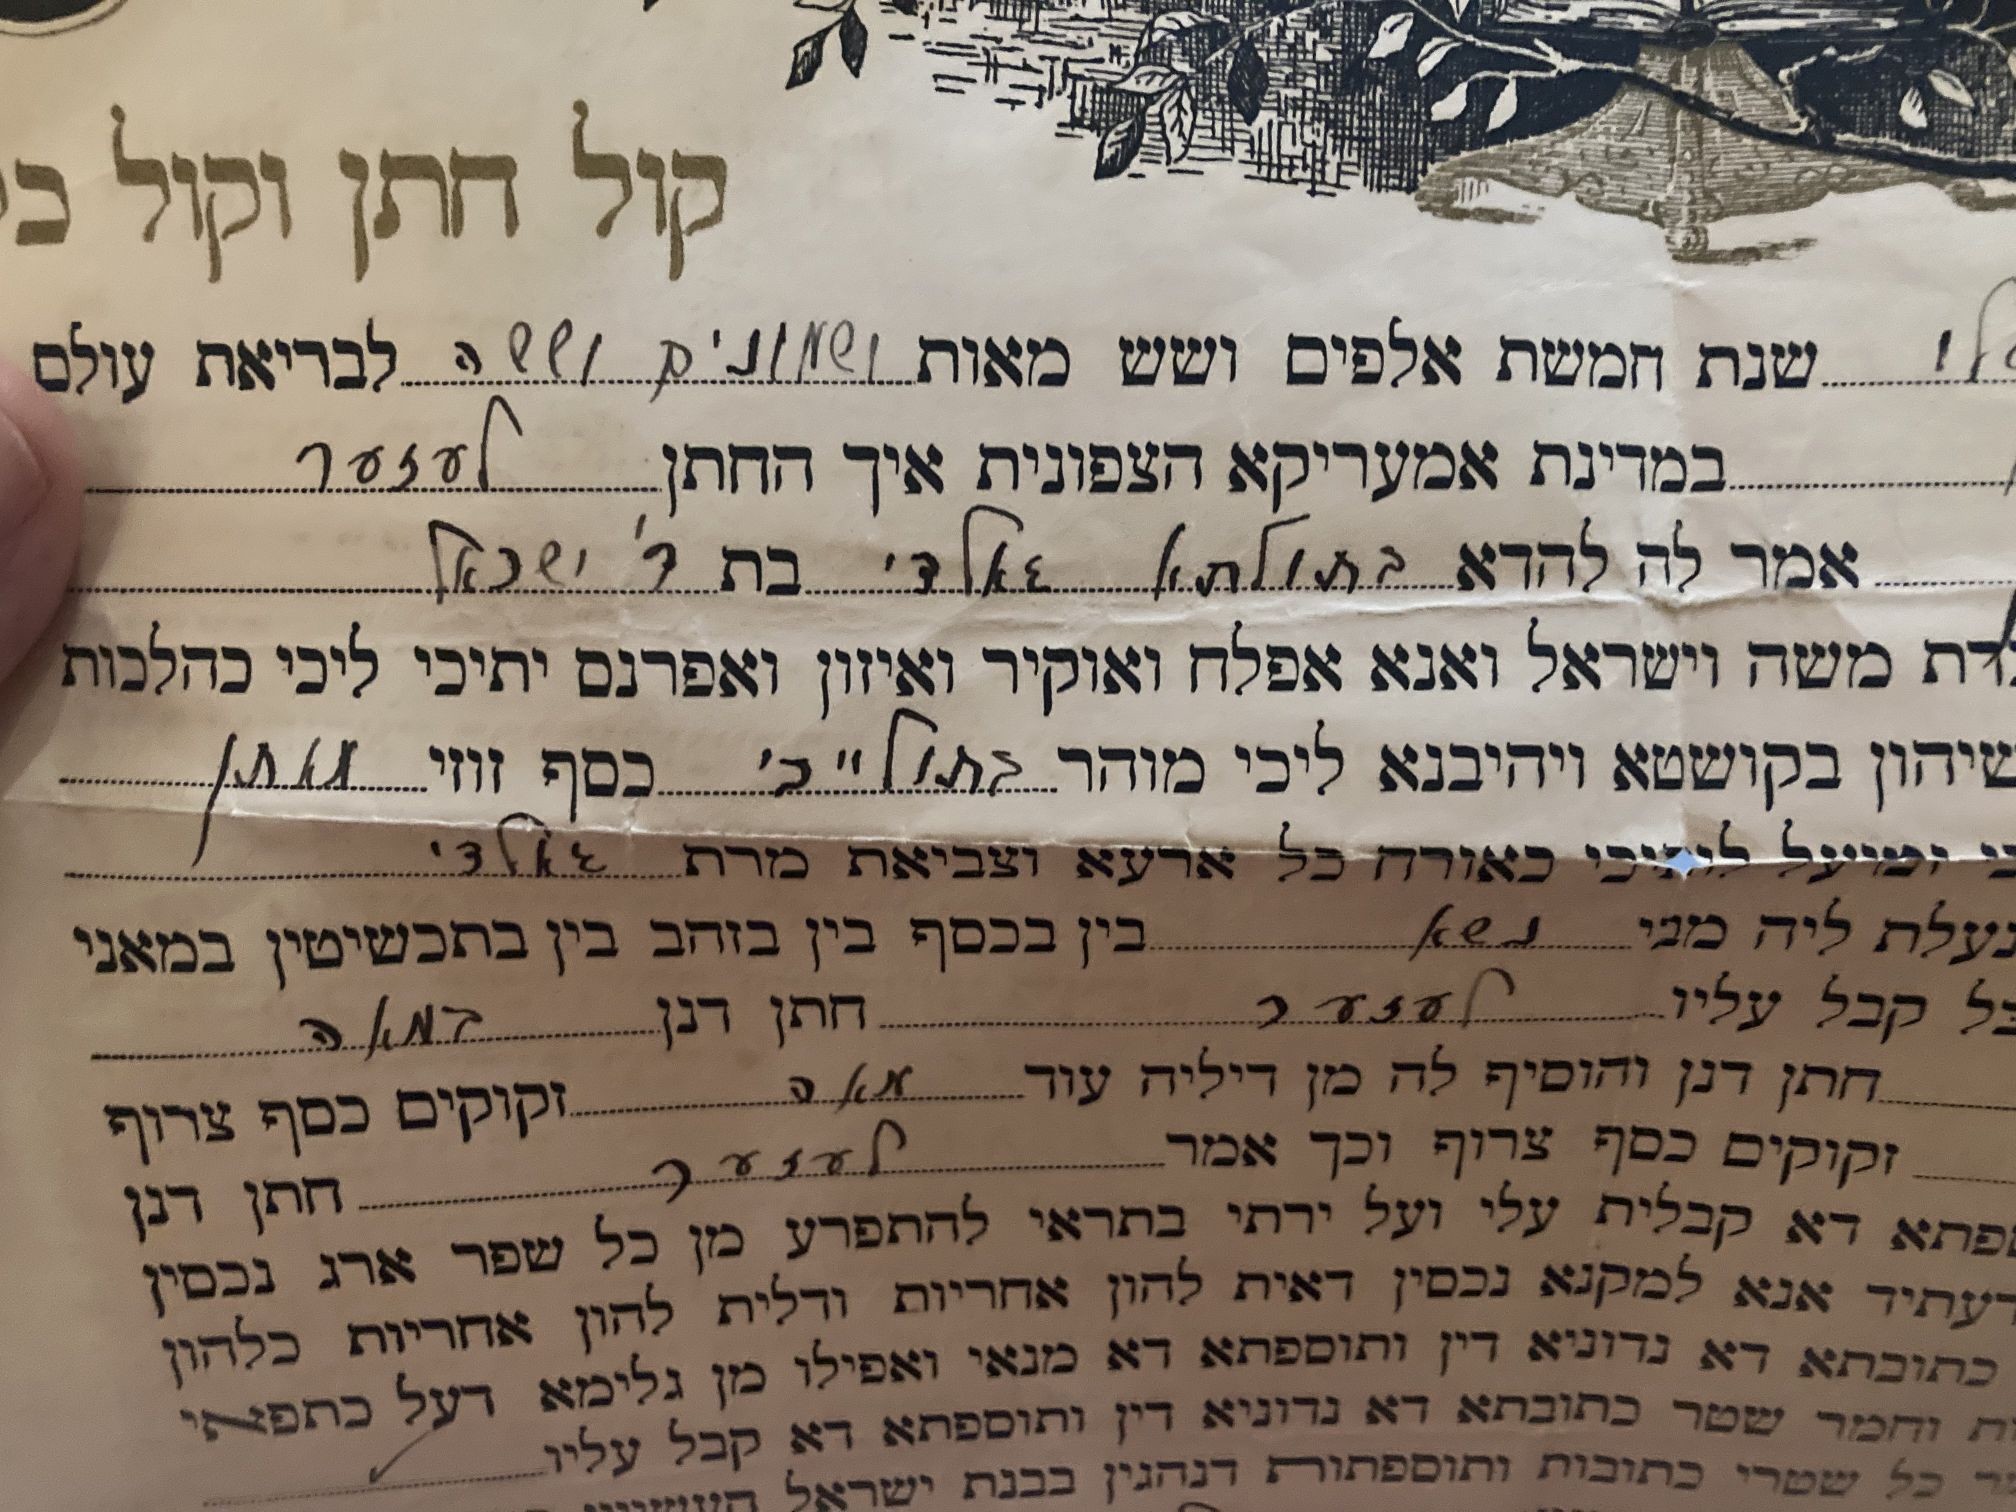 קול חתן וקול
שנת חמשת אלפים ושש מאות ושמונים וששה לבריאת עולם
במדינת אמעריקא הצפונית איך החתן לעזער
אמר לה להדא בתולתא גאלדי בת ר' ישראל
משה וישראל ואנא אפלח ואוקיר ואיזון ואפרנס יתיכי ליכי כהלכות
בקושטא ויהיבנא ליכי מוהר בתוליכי כסף זוזי מאתן
ומיעל לותיכי כאורח כל ארעא וצביאת מרת גאלדי
ליה מבי נשא בין בכסף בין בזהב בין בתכשיטין במאני
קבל עליו לעזער חתן דנן במאה
חתן דנן והוסיף לה מן דיליה עוד מאה זקוקים כסף צרוף
זקוקים כסף צרוף וכך אמר לעזער חתן דנן
דא קבלית עלי ועל ירתי בתראי להתפרע מן כל שפר ארג נכסין
אנא למקנא נכסין דאית להון אחריות ודלית להון אחריות כלהון
כתובתא דא נדוניא דין ותוספתא דא מנאי ואפילו מן גלימא דעל כתפאי
וחמר שטר כתובתא דא נדוניא דין ותוספתא דא קבל עליו
כל שטרי כתובות ותוספתות דנהגין בבנת ישראל